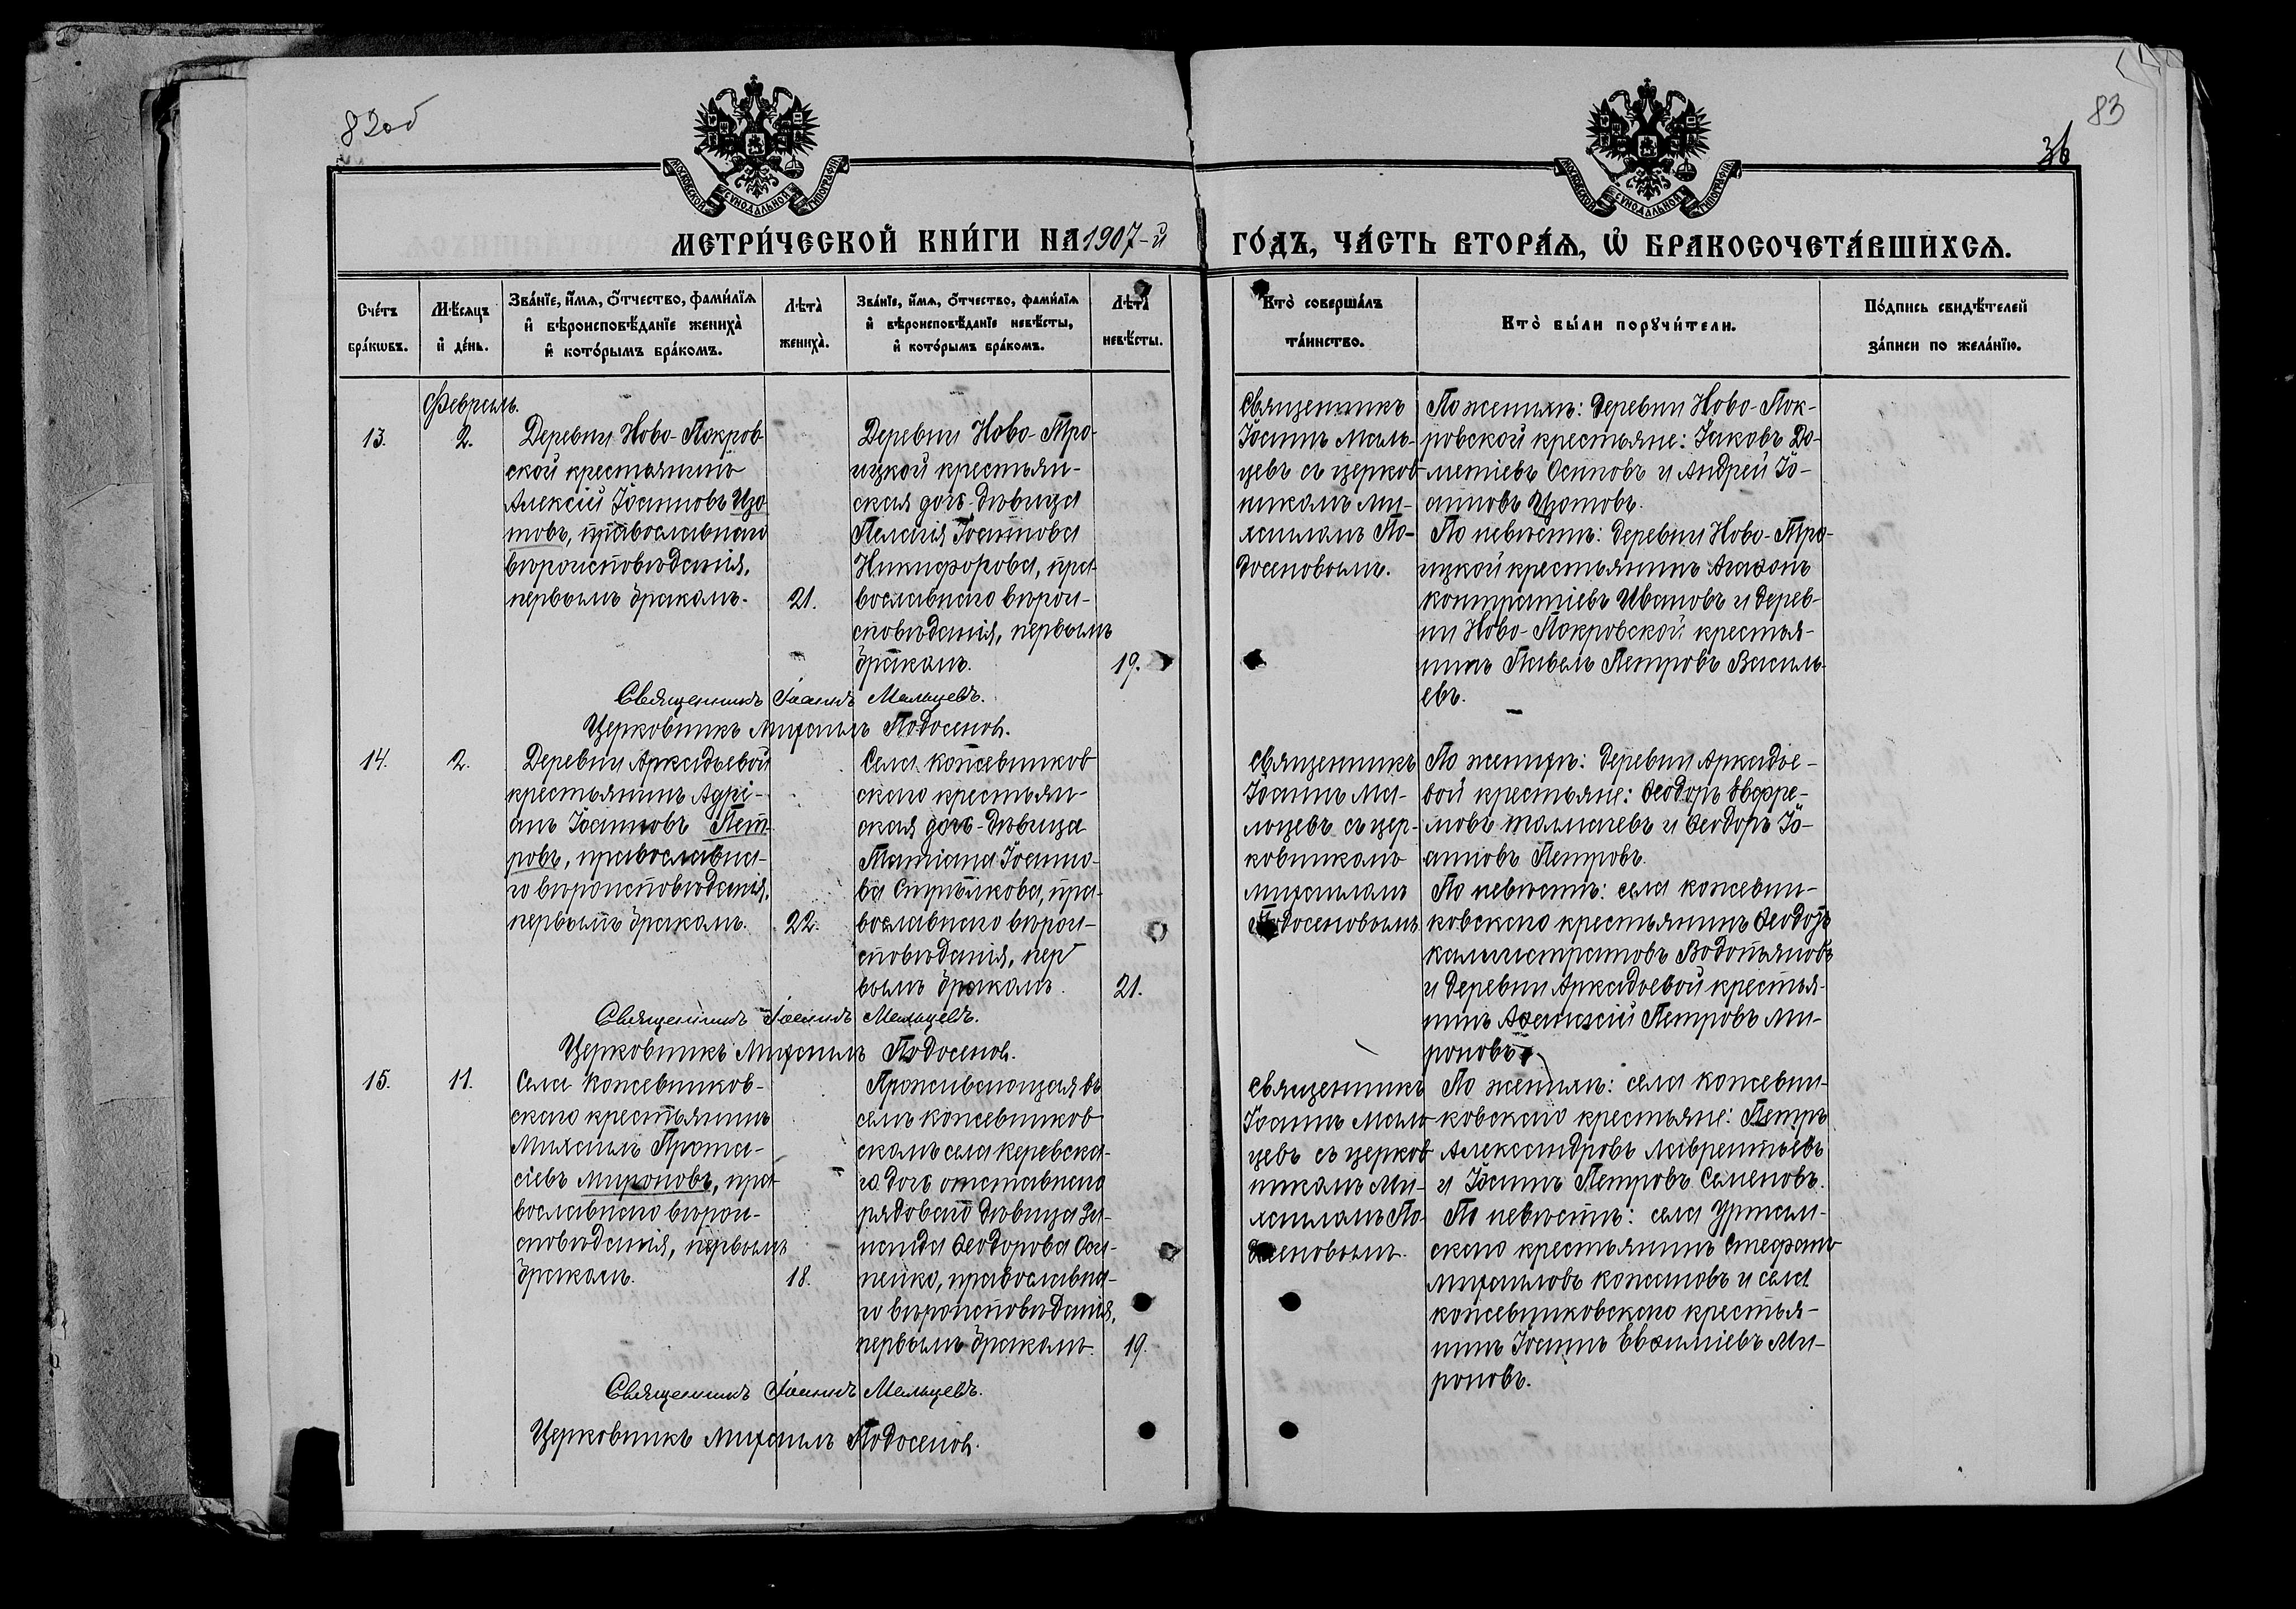 82об
83
36
МОСКОВСКОЙ СУНОДАЛЬНОЙ ТИПОГРАФІИ
МОСКОВСКОЙ СУНОДАЛЬНОЙ ТИПОГРАФІИ
МЕТРИ́ЧЕСКОЙ КНИ́ГИ НА 1907-й ГО́ДЪ, ЧА́СТЬ ВТОРА́Ѧ, Ѡ҆ БРАКОСОЧЕТА́ВШИХСѦ.
Сче́тъ
бра́кѡвъ.
Мѣ́сяцъ
и҆ де́нь.
Зва́нїе, и҆́мѧ, ѻ҆́тчество, фами́лїѧ
и҆ вѣроисповѣ́данїе жениха̀
и҆ кото́рымъ бра́комъ.
Лѣта̀
жениха̀.
Зва́нїе, и҆́мѧ, ѻ҆́тчество, фами́лїѧ
и҆ вѣроисповѣ́данїе невѣ́сты,
и҆ кото́рымъ бра́комъ.
Лѣта̀
невѣ́сты.
Кто̀ соверша́лъ
та́инство.
Кто̀ бы́ли порꙋчи́тели.
По́дпись свидѣ́телей
за́писи по жела́нїю.
Февраль.
13.
2.
Деревни Ново-Покров
ской крестьянинъ
Алексій Іоанновъ Изо
товъ, православнаго
вѣроисповѣданія,
первымъ бракомъ.
21.
Деревни Ново-Тро-
ицкой крестьян-
ская дочь-дѣвица
Пелагія Іоаннова
Никифорова, пра-
вославнаго вѣрои-
сповѣданія, первымъ
бракомъ.
19.
Священникъ
Іоаннъ Маль-
цевъ съ церков
никомъ Ми-
хаиломъ По-
досеновымъ.
По женихѣ: деревни Ново-Пок-
ровской крестьяне: Іаковъ До-
метіевъ Осиповъ и Андрей Іо-
анновъ Изотовъ.
По невѣстѣ: деревни Ново-Тро-
ицкой крестьянинъ Агафонъ
Контратіевъ Ивановъ и дерев-
ни Ново-Покровской крестья-
нинъ Павелъ Петровъ Василь-
евъ.
Священникъ Іоаннъ Мальцевъ.
Церковникъ Михаилъ Подосенов.
14.
2.
Деревни Аркадьевой
крестьянинъ Адрі-
анъ Іоанновъ Пет-
ровъ, православна-
го вѣроисповѣданія,
первымъ бракомъ.
22.
Села Кожевников
скаго крестьян-
ская дочь-дѣвица
Татіана Іоанно-
ва Стрѣлкова, пра-
вославнаго вѣрои-
сповѣданія, пер
вымъ бракомъ.
21.
Священникъ
Іоаннъ Ма-
льцевъ съ цер-
ковникомъ
Михаиломъ
Подосеновымъ
По женихѣ: деревни Аркадье-
вой крестьяне: Ѳеодоръ Евфре-
мовъ Толмачевъ и Ѳеодоръ Іо-
анновъ Петровъ.
По невѣстѣ: села Кожевни-
ковскаго крестьянинъ Ѳеодоръ
Каллистратовъ Водопьяновъ
и деревни Аркадьевой крестья-
нинъ Аѳанасій Петровъ Ми-
роновъ.
Священникъ Іоаннъ Мальцевъ.
Церковникъ Михаилъ Подосенов.
15.
11.
Села Кожевников-
скаго крестьянинъ
Михаилъ Прота-
сіевъ Мироновъ, пра-
вославнаго вѣрои-
сповѣданія, первымъ
бракомъ.
18.
Проживающая въ
селѣ Кожевников
скомъ села Керевска-
го дочь отставнаго
рядоваго дѣвица Зи-
наида Ѳеодорова Оси-
пенко, православна-
го вѣроисповѣданія,
первымъ бракомъ.
19.
Священникъ
Іоаннъ Маль-
цевъ съ церков
никомъ Ми-
хаиломъ По-
досеновымъ.
По женихѣ: села Кожевни-
ковскаго крестьяне: Петръ
Александровъ Лаврентьевъ
и Іоаннъ Петровъ Семеновъ.
По невѣстѣ: села Уртам-
скаго крестьянинъ Стефанъ
Михаиловъ Кожановъ и села
Кожевниковскаго крестья-
нинъ Іоаннъ Евѳиміевъ Ми-
роновъ.
Священникъ Іоаннъ Мальцевъ.
Церковникъ Михаилъ Подосенов.